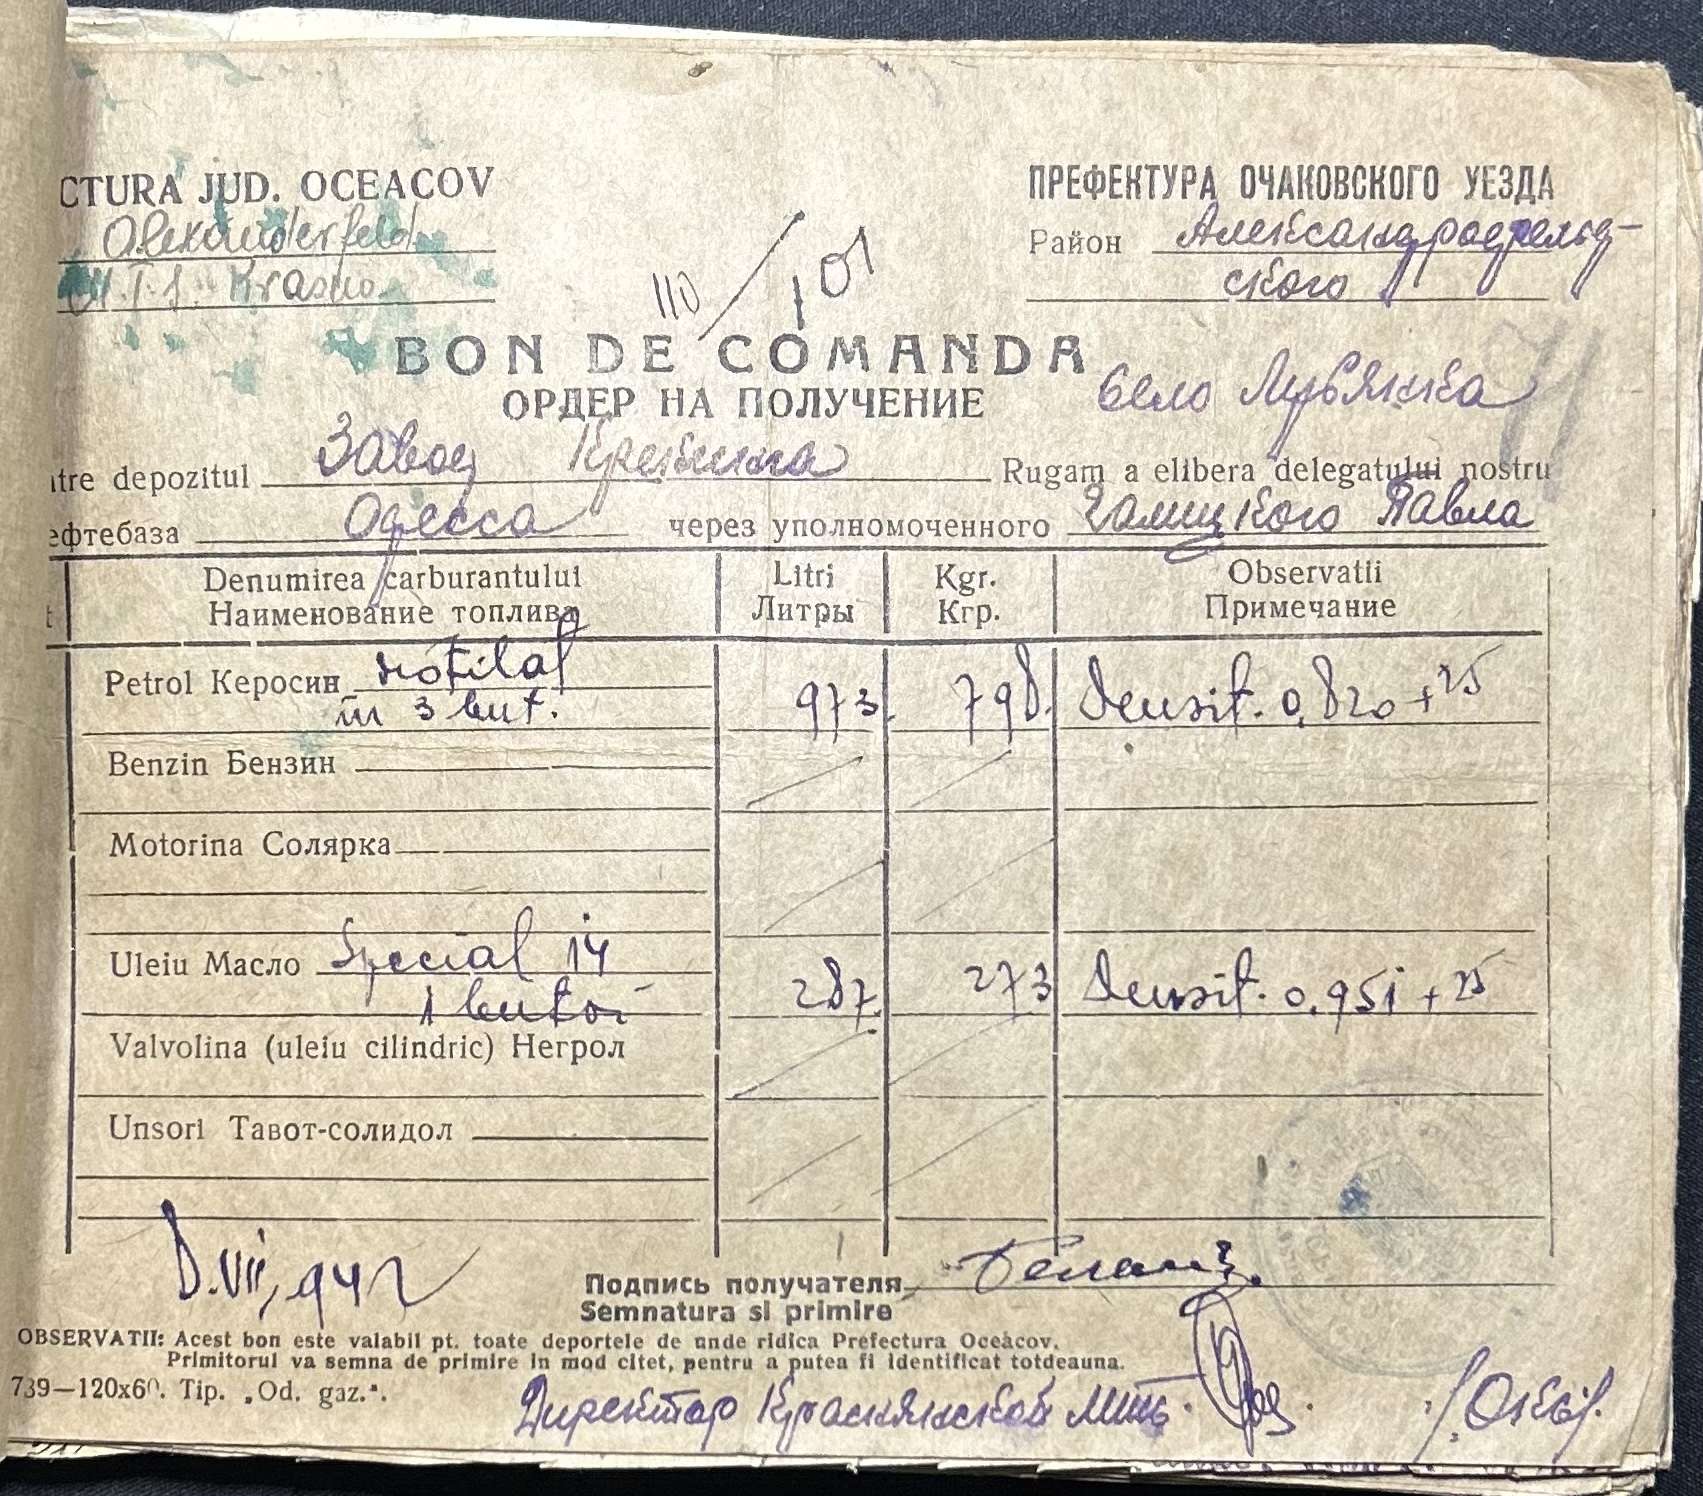 CTURA JUD. OCEACOV
Alexanderfeld
M.T.S. Krasno
ПРЕФЕКТУРА ОЧАКОВСКОГО УЕЗДА
Район Александрфельд-
ского
110 / 101
BON DE COMANDA
ОРДЕР НА ПОЛУЧЕНИЕ
село Лубянка
ntre depozitul Завод Кренина Rugam a elibera delegatului nostru
ефтебаза Одесса через уполномоченного Галицкого Павла
Denumirea carburantului Litri Kgr. Observatii
Наименование топлива Литры Кгр. Примечание
Petrol Керосин rafilat 973. 798. Densit. 0,820 + 25
in 3 but.
Benzin Бензин
Motorina Солярка
Uleiu Масло Special 14 287. 273 Densit. 0.951 + 25
1 butoi
Valvolina (uleiu cilindric) Негрол
Unsori Тавот-солидол
.VII, 942
Подпись получателя
Semnatura si primire
OBSERVATII: Acest bon este valabil pt. toate deportele de unde ridica Prefectura Oceacov.
Primitorul va semna de primire in mod citet, pentru a putea fi identificat totdeauna.
739—120x60. Tip. „Od. gaz.“.
Директор Краснянской мтс.